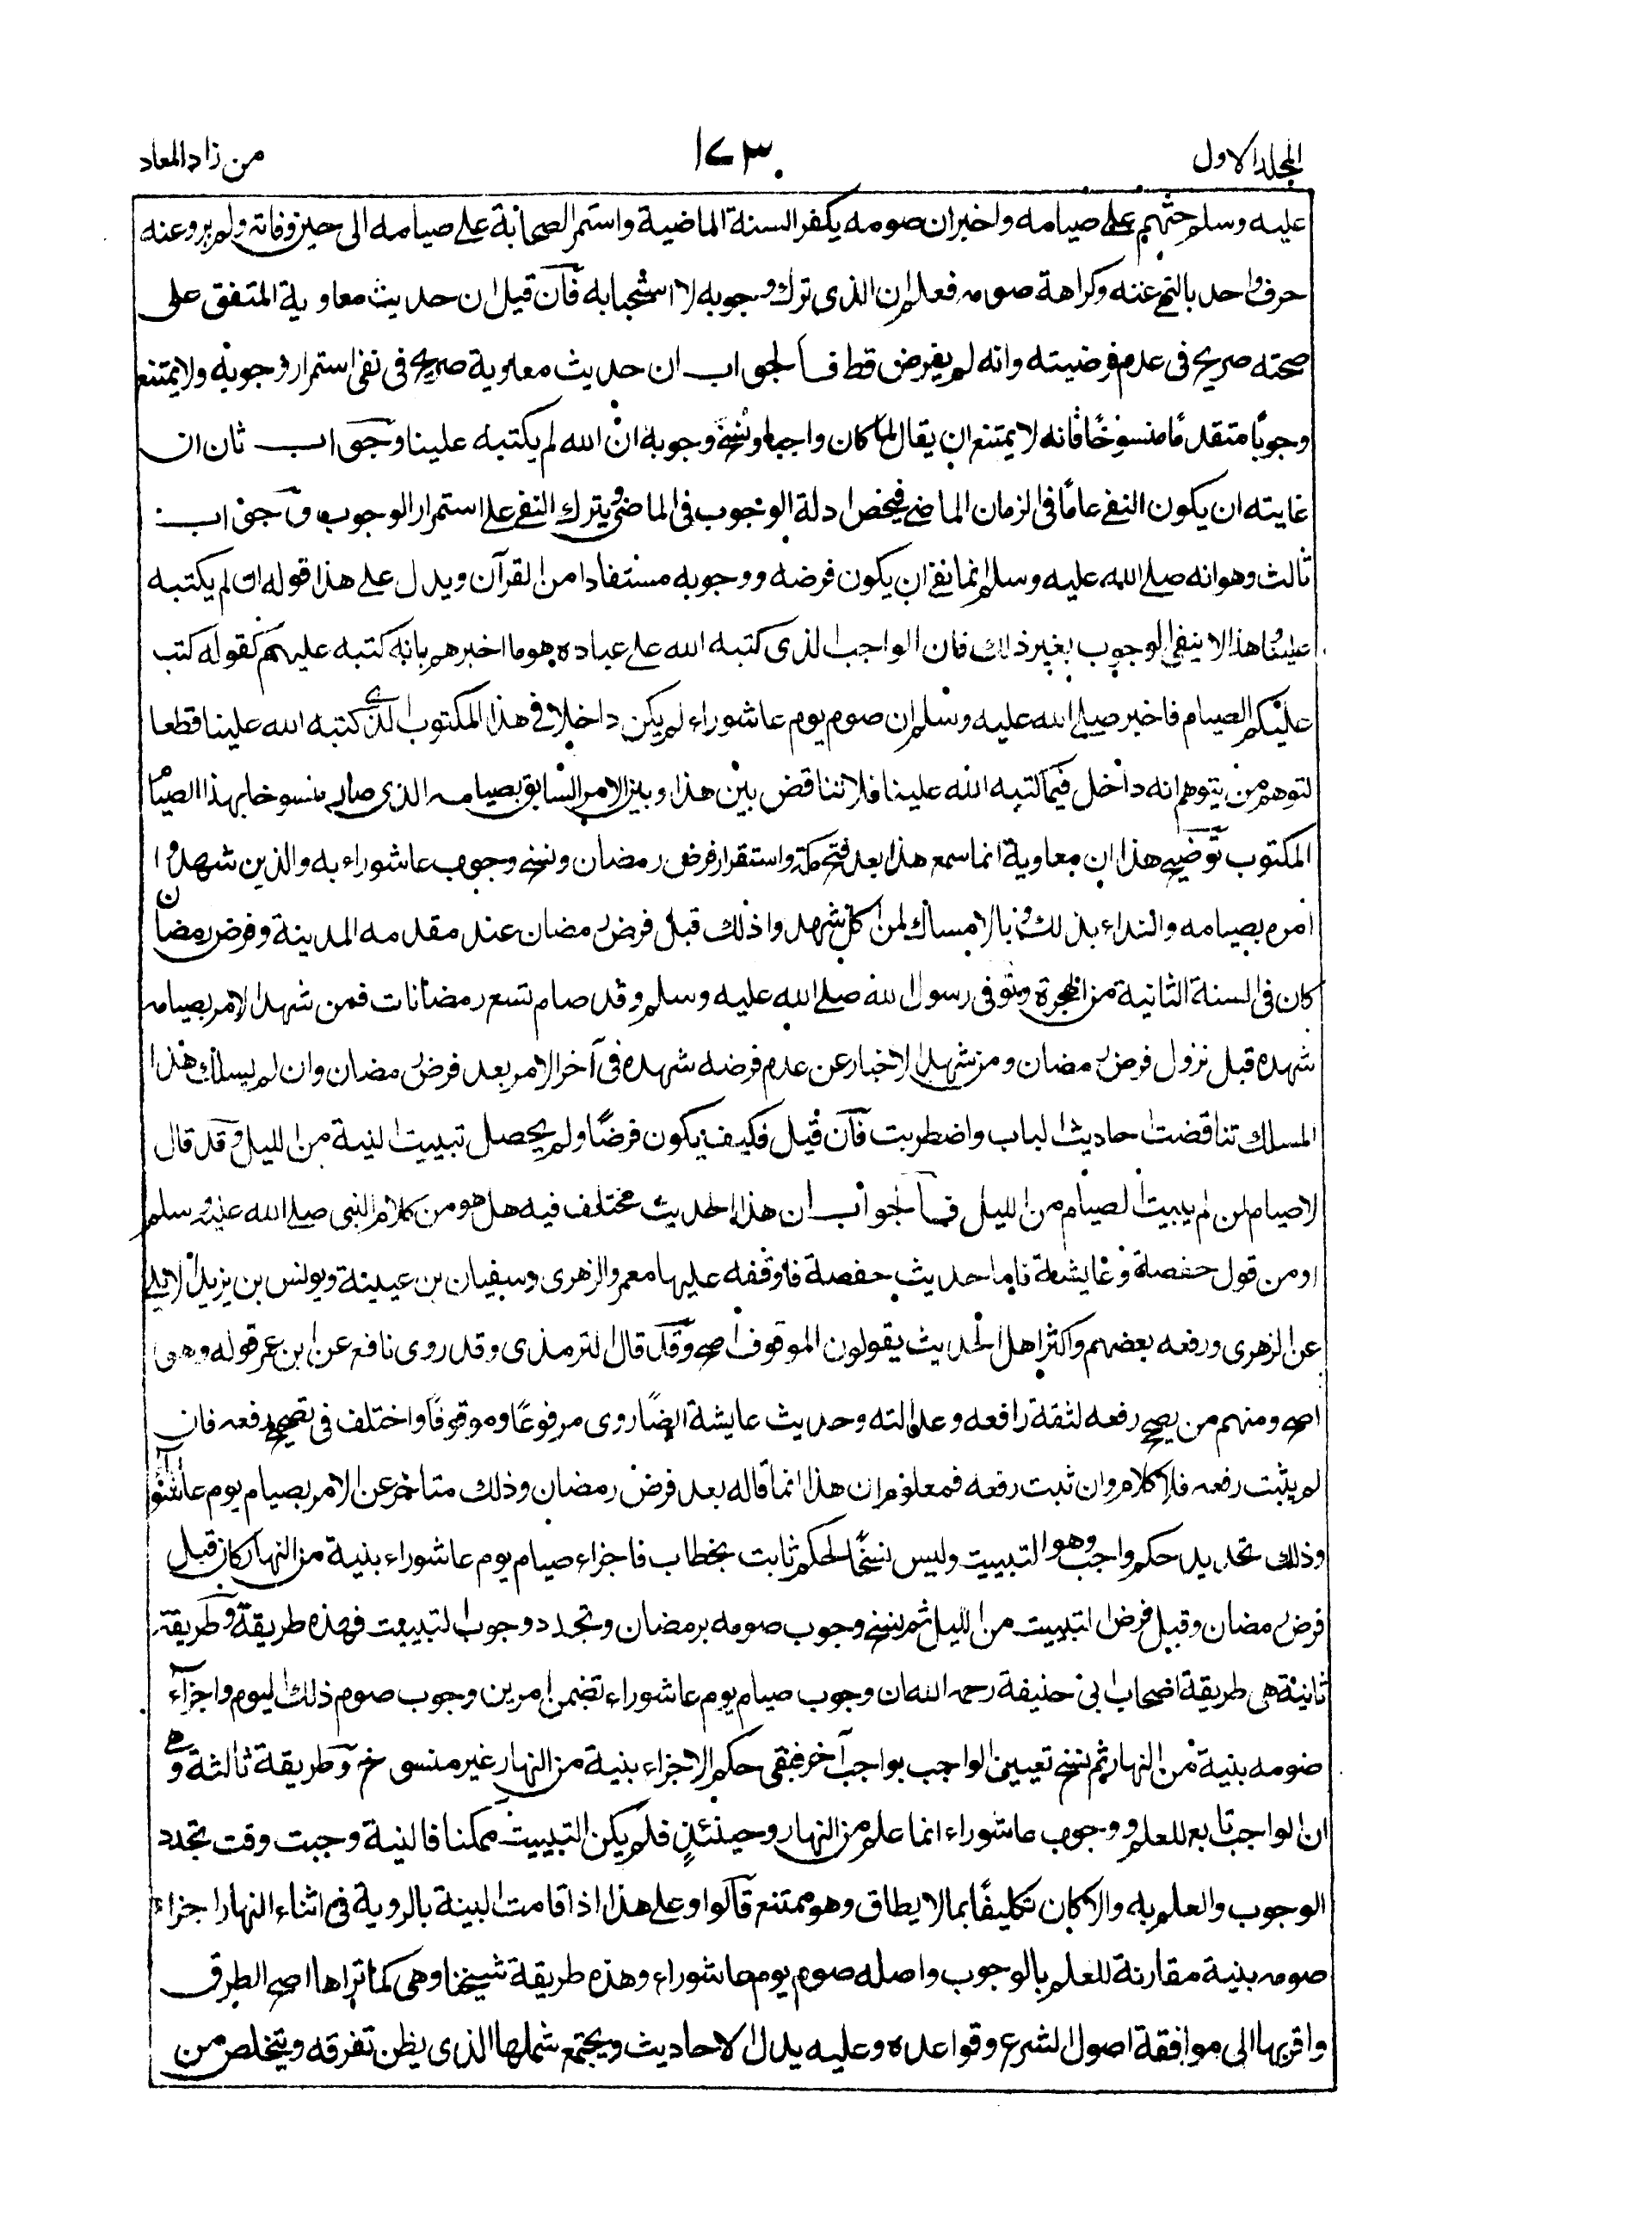 المجلد الاول
١٧٣
من زاد المعاد
عليه وسلم حثهم على صيامه واخبر ان صومه يكفر السنة الماضية واستمر الصحابة على صيامه الى حين وفاته ولم يرو عنه
حرف واحد بالنهي عنه وكراهة صومه فعلم ان الذى ترك وجوبه لا استحبابه فآن قيل ان حديث معاوية المتفق على
صحته صريح فى عدم فرضيته وانه لم يفرض قط فالجواب ان حديث معاوية صريح فى نفى استمرار وجوبه ولا يمتنع
وجوبًا متقدمًا منسوخًا فانه لا يمتنع ان يقال لما كان واجبا ونسخ وجوبه ان الله لم يكتبه علينا وجواب ثان ان
غايته ان يكون النفي عامًا فى الزمان الماضي فيخص ادلة الوجوب فى الماضى ويترك النفي على استمرار الوجوب وجواب
ثالث وهو انه صلى الله عليه وسلم انما نفى ان يكون فرضه ووجوبه مستفادا من القرآن ويدل على هذا قوله ان لم يكتبه
علينا هذا لا ينفي الوجوب بغير ذلك فان الواجب الذى كتبه الله على عباده هو ما اخبرهم بانه كتبه عليهم كقوله كتب
عليكم الصيام فاخبر صلى الله عليه وسلم ان صوم يوم عاشوراء لم يكن داخلا في هذا المكتوب الذي كتبه الله علينا قطعا
لتوهم من يتوهم انه داخل فيما كتبه الله علينا فلا تناقض بين هذا وبين الامر السابق بصيامه الذى صار منسوخا بهذا الصيام
المكتوب توضيح هذا ان معاوية انما سمع هذا بعد فتح مكة واستقرار فرض رمضان ونسخ وجوب عاشوراء به والذين شهدوا
امره بصيامه والنداء بذلك وبالامساك لمن اكل شهدوا ذلك قبل فرض رمضان عند مقدمه المدينة وفرض رمضان
كان فى السنة الثانية من الهجرة وتوفى رسول الله صلى الله عليه وسلم وقد صام تسع رمضانات فمن شهد الامر بصيامه
شهده قبل نزول فرض رمضان ومن شهد الاخبار عن عدم فرضه شهده فى آخر الامر بعد فرض رمضان وان لم يسلك هذا
المسلك تناقضت احاديث الباب واضطربت فآن قيل فكيف يكون فرضًا ولم يحصل تبييت النية من الليل وقد قال
لا صيام لمن لم يبيت الصيام من الليل فالجواب ان هذا الحديث مختلف فيه هل هو من كلام النبى صلى الله عليه وسلم
او من قول حفصة وعايشة فاما حديث حفصة فاوقفه عليها معمر والزهرى وسفيان بن عيينة ويونس بن يزيد الايلي
عن الزهرى ورفعه بعضهم واكثر اهل الحديث يقولون الموقوف اصح وقد قال الترمذى وقد روى نافع عن ابن عمر قوله وهو
اصح ومنهم من يصحح رفعه لثقة رافعه وعدالته وحديث عايشة ايضًا روى مرفوعًا وموقوفًا واختلف فى تصحيح رفعه فان
لم يثبت رفعه فلا كلام وان ثبت رفعه فمعلوم ان هذا انما قاله بعد فرض رمضان وذلك متاخر عن الامر بصيام يوم عاشوراء
وذلك تجديد حكم واجب وهو التبييت وليس نسخًا لحكم ثابت بخطاب فاجزاء صيام يوم عاشوراء بنية من النهار كان قبل
فرض رمضان وقبل فرض التبييت من الليل ثم نسخ وجوب صومه برمضان وتجدد وجوب التبييت فهذه طريقة وطريقة
ثانية هى طريقة اصحاب ابى حنيفة رحمه الله ان وجوب صيام يوم عاشوراء تضمن امرين وجوب صوم ذلك اليوم واجزآء
صومه بنية من النهار ثم نسخ تعيين الواجب بواجب آخر فبقى حكم الاجزاء بنية من النهار غير منسوخ وطريقة ثالثة وهى
ان الواجب تابع للعلم ووجوب عاشوراء انما علم من النهار وحينئذٍ فلم يكن التبييت ممكنا فالنية وجبت وقت تجدد
الوجوب والعلم به والا كان تكليفًا بما لا يطاق وهو ممتنع قالوا وعلى هذا اذا قامت البينة بالروية فى اثناء النهار اجزاء
صومه بنية مقارنة للعلم بالوجوب واصله صوم يوم عاشوراء وهذه طريقة شيخنا وهى كما تراها اصح الطرق
واقربها الى موافقة اصول الشرع وقواعده وعليه يدل الاحاديث ويجتمع شملها الذى يظن تفرقه ويتخلص من